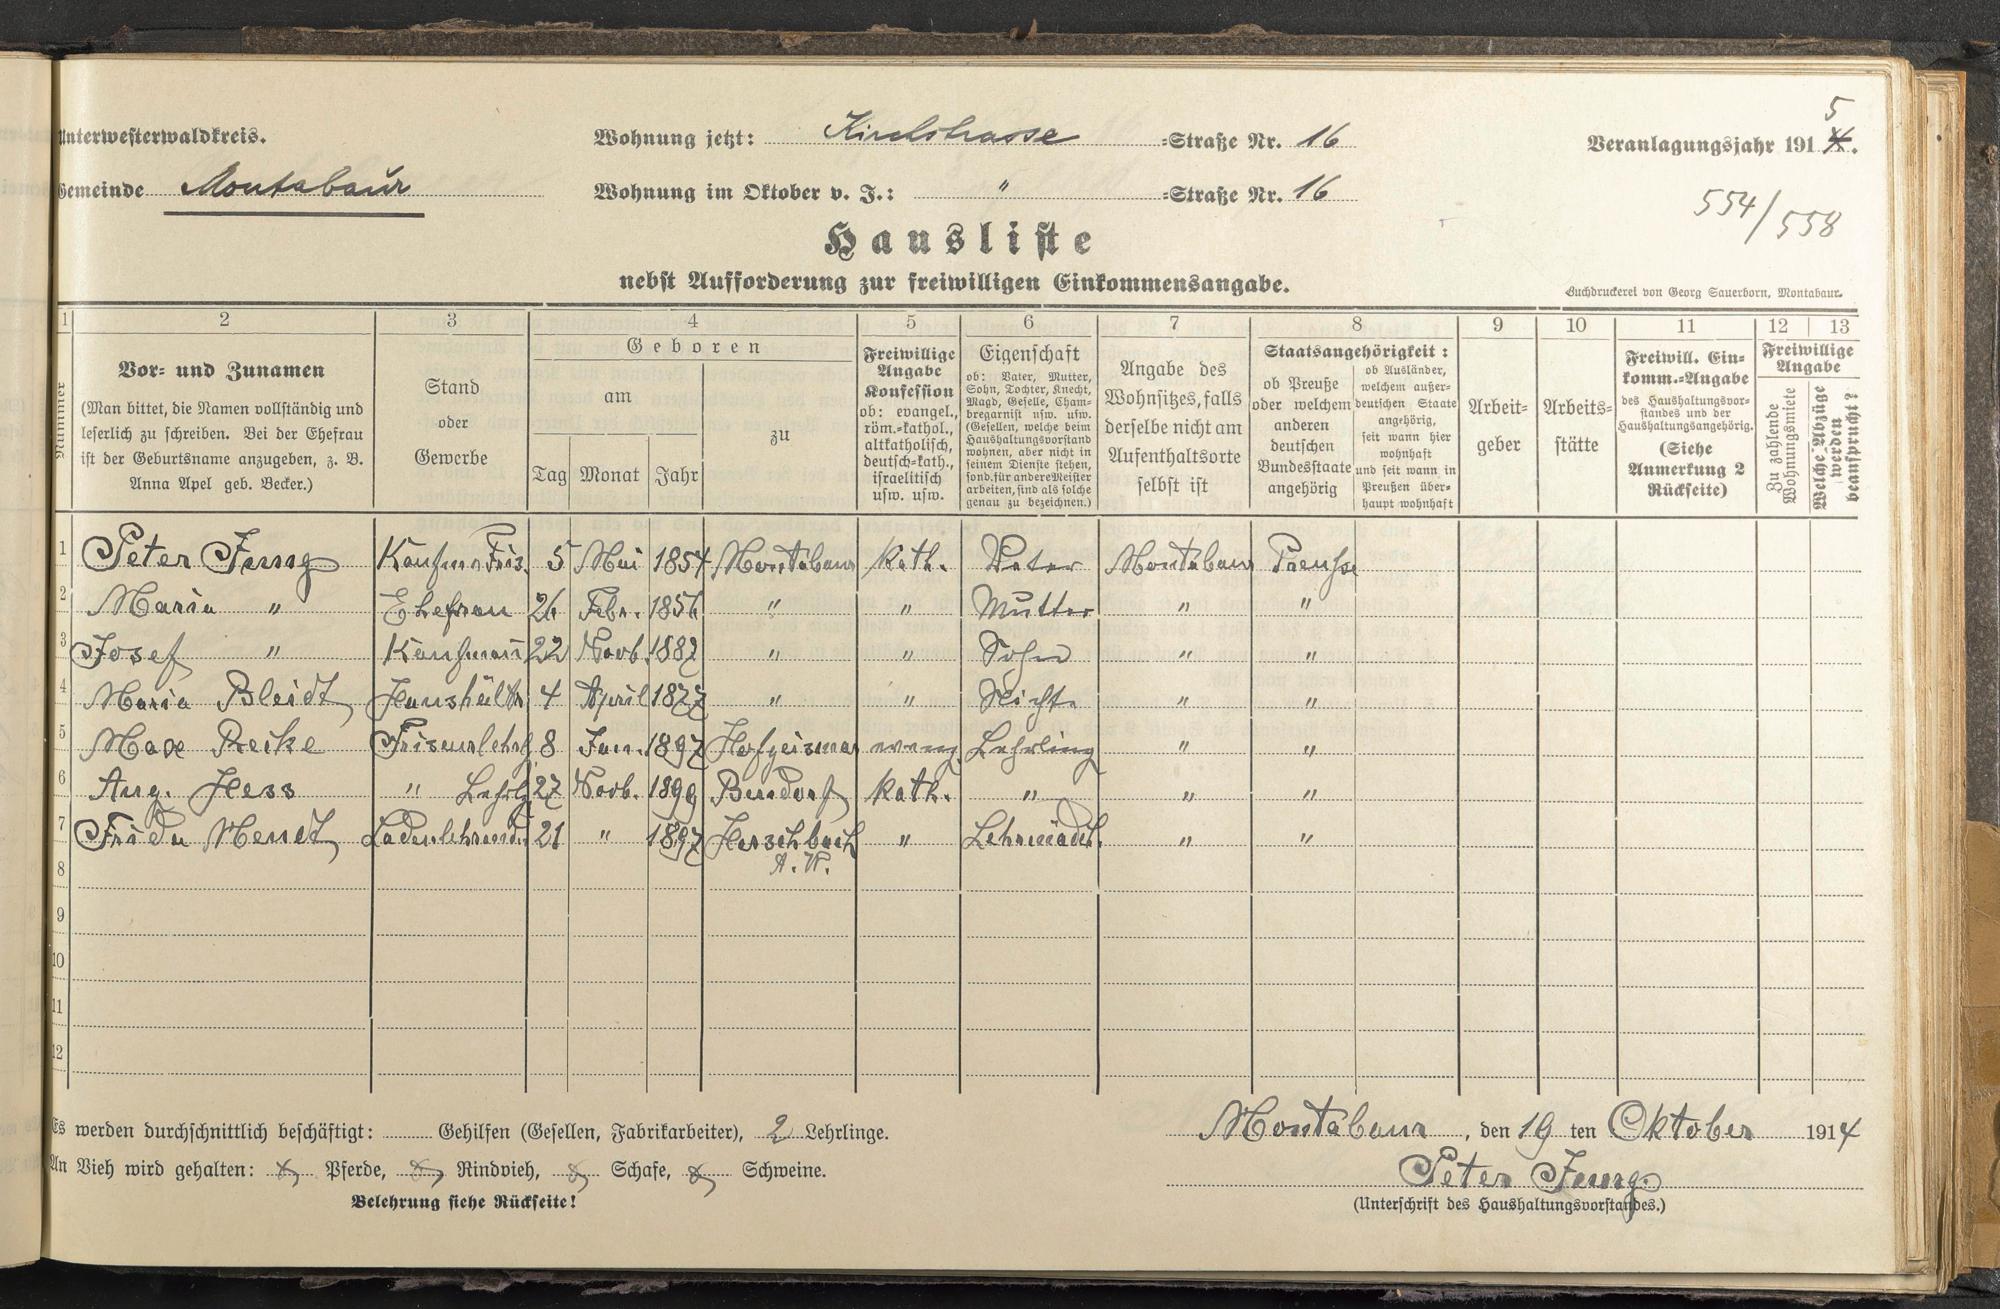 Unterwesterwaldkreis.
Wohnung jetzt: Kirchstrasse =Straße Nr. 16
Veranlagungsjahr 191 4. 5
Gemeinde Montabaur
Wohnung im Oktober v. J.: " =Straße Nr. 16
554/558
Hausliste
nebst Aufforderung zur freiwilligen Einkommensangabe.
Buchdruckerei von Georg Sauerborn, Montabaur.
1 2 3 4 5 6 7 8 9 10 11 12 13
Nummer
Vor- und Zunamen
(Man bittet, die Namen vollständig und
leserlich zu schreiben. Bei der Ehefrau
ist der Geburtsname anzugeben, z. B.
Anna Apel geb. Becker.)
Stand
oder
Gewerbe
Geboren
am
zu
Tag Monat Jahr
Freiwillige
Angabe
Konfession
ob: evangel.,
röm.-kathol.,
altkatholisch,
deutsch-kath.,
israelitisch
usw. usw.
Eigenschaft
ob: Vater, Mutter,
Sohn, Tochter, Knecht,
Magd, Geselle, Cham-
bregarnist usw. usw.
(Gesellen, welche beim
Haushaltungsvorstand
wohnen, aber nicht in
seinem Dienste stehen,
sond. für andere Meister
arbeiten, sind als solche
genau zu bezeichnen.)
Angabe des
Wohnsitzes, falls
derselbe nicht am
Aufenthaltsorte
selbst ist
Staatsangehörigkeit:
ob Preuße
oder welchem
anderen
deutschen
Bundesstaate
angehörig
ob Ausländer,
welchem außer-
deutschen Staate
angehörig,
seit wann hier
wohnhaft
und seit wann in
Preußen über-
haupt wohnhaft
Arbeit-
geber
Arbeits-
stätte
Freiwill. Ein-
komm.-Angabe
des Haushaltungsvor-
standes und der
Haushaltungsangehörig.
(Siehe
Anmerkung 2
Rückseite)
Freiwillige
Angabe
Zu zahlende
Wohnungsmiete
Welche Abzüge
werden
beansprucht?
1 Peter Jung Kaufm Fris. 5 Mai 1854 Montabaur kath. Vater Montabaur Preusse
2 Maria " Ehefrau 26 Febr. 1856 " " Mutter " "
3 Josef " Kaufmann 22 Novb. 1887 " " Sohn " "
4 Maria Bleidt Haushält. 4 April 1877 " " Nichte " "
5 Max Recke Friseurlehrl. 8 Jan. 1897 Hofgeismar evang. Lehrling " "
6 Aug. Hess " Lehrlg. 27 Novb. 1899 Bendorf kath. " " "
7 Frida Mendt Ladenlehrmd. 21 " 1897 Herschbach " Lehrmädch. " "
A. W.
8
9
10
11
12
Es werden durchschnittlich beschäftigt: Gehilfen (Gesellen, Fabrikarbeiter), 2 Lehrlinge.
Montabaur, den 19 ten Oktober 1914
An Vieh wird gehalten: Pferde, Rindvieh, Schafe, Schweine.
Peter Jung.
Belehrung siehe Rückseite!
(Unterschrift des Haushaltungsvorstandes.)